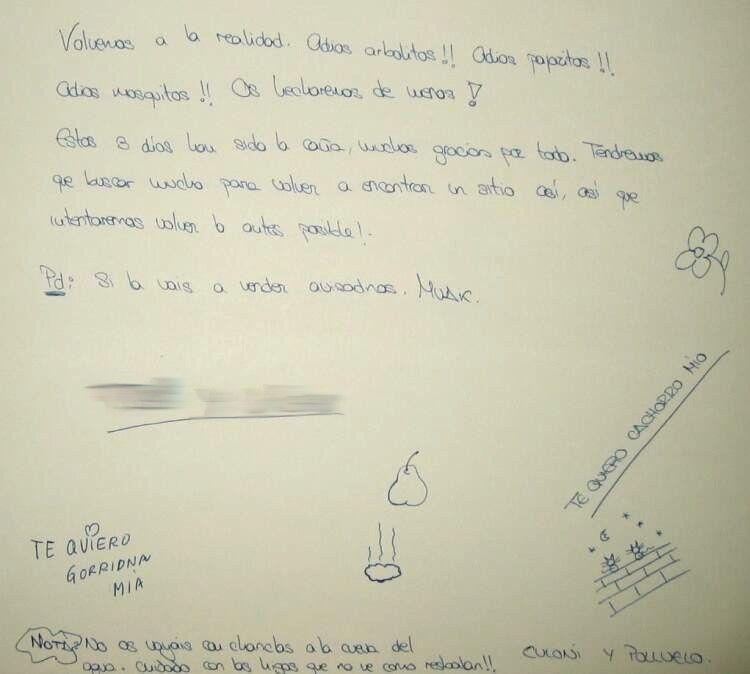 Volvemos a la realidad. Adios arbolitos!! Adios pajaritos!!
Adios mosquitos!! Os hecharemos de menos!
Estos 3 días han sido la caña, muchas gracias por todo. Tendremos
que buscar mucho para volver a encontrar un sitio así, así que
intentaremos volver lo antes posible!.
Pd: Si la vais a vender avisadnos. MUAK.
TE QUIERO CACHORRO MÍO
TE QUIERO
MIA
NOTA: No os vayais con chanclas a la cueva del
agua. Cuidado con los higos que no ve como resbalan!!
CULONI Y POLLUELO.